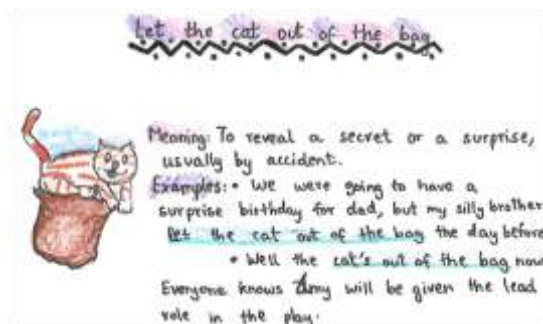 Let the cat out of the bag
Meaning: To reveal a secret or a surprise,
usually by accident.
Examples: • We were going to have a
surprise birthday for dad, but my silly brother
let the cat out of the bag the day before
• Well the cat's out of the bag now
Everyone knows Amy will be given the lead
role in the play.